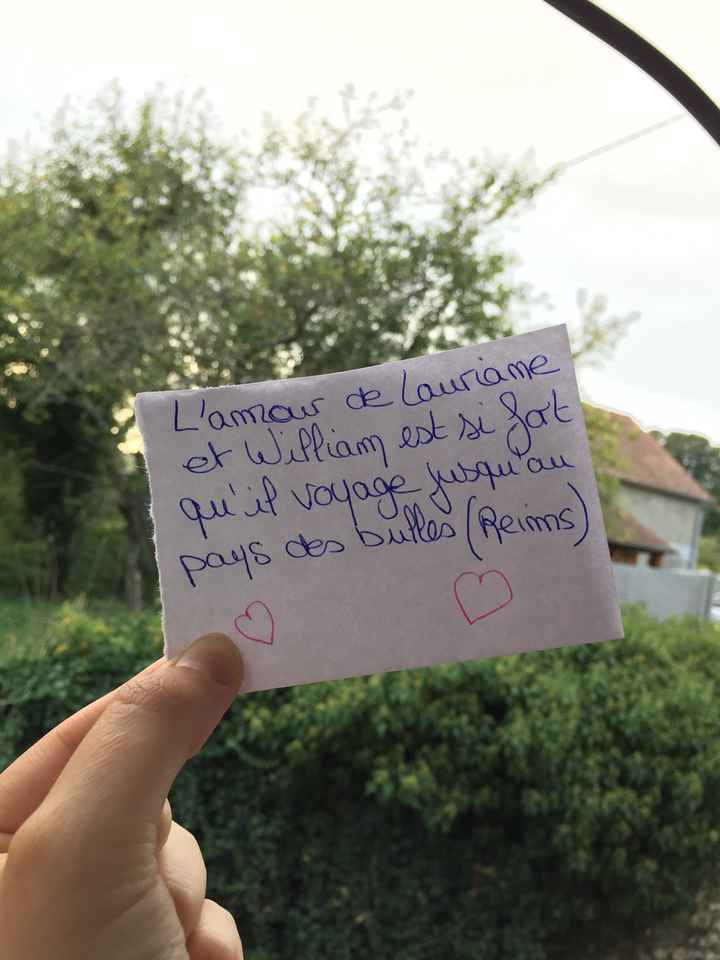 L'amour de Lauriane
et William est si fort
qu'il voyage jusqu'au
pays des bulles (Reims)